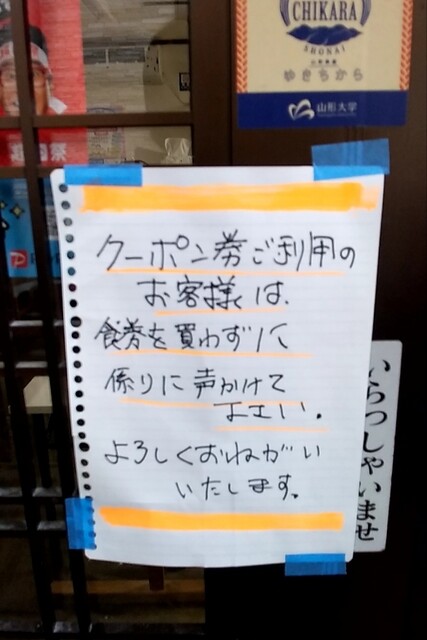 CHIKARA
SHONAI
ゆきちから
山形大学
クーポン券ご利用の
お客様は.
食券を買わずに
係りに声かけて
下さい.
よろしくおねがい
いたします。
いらっしゃいませ